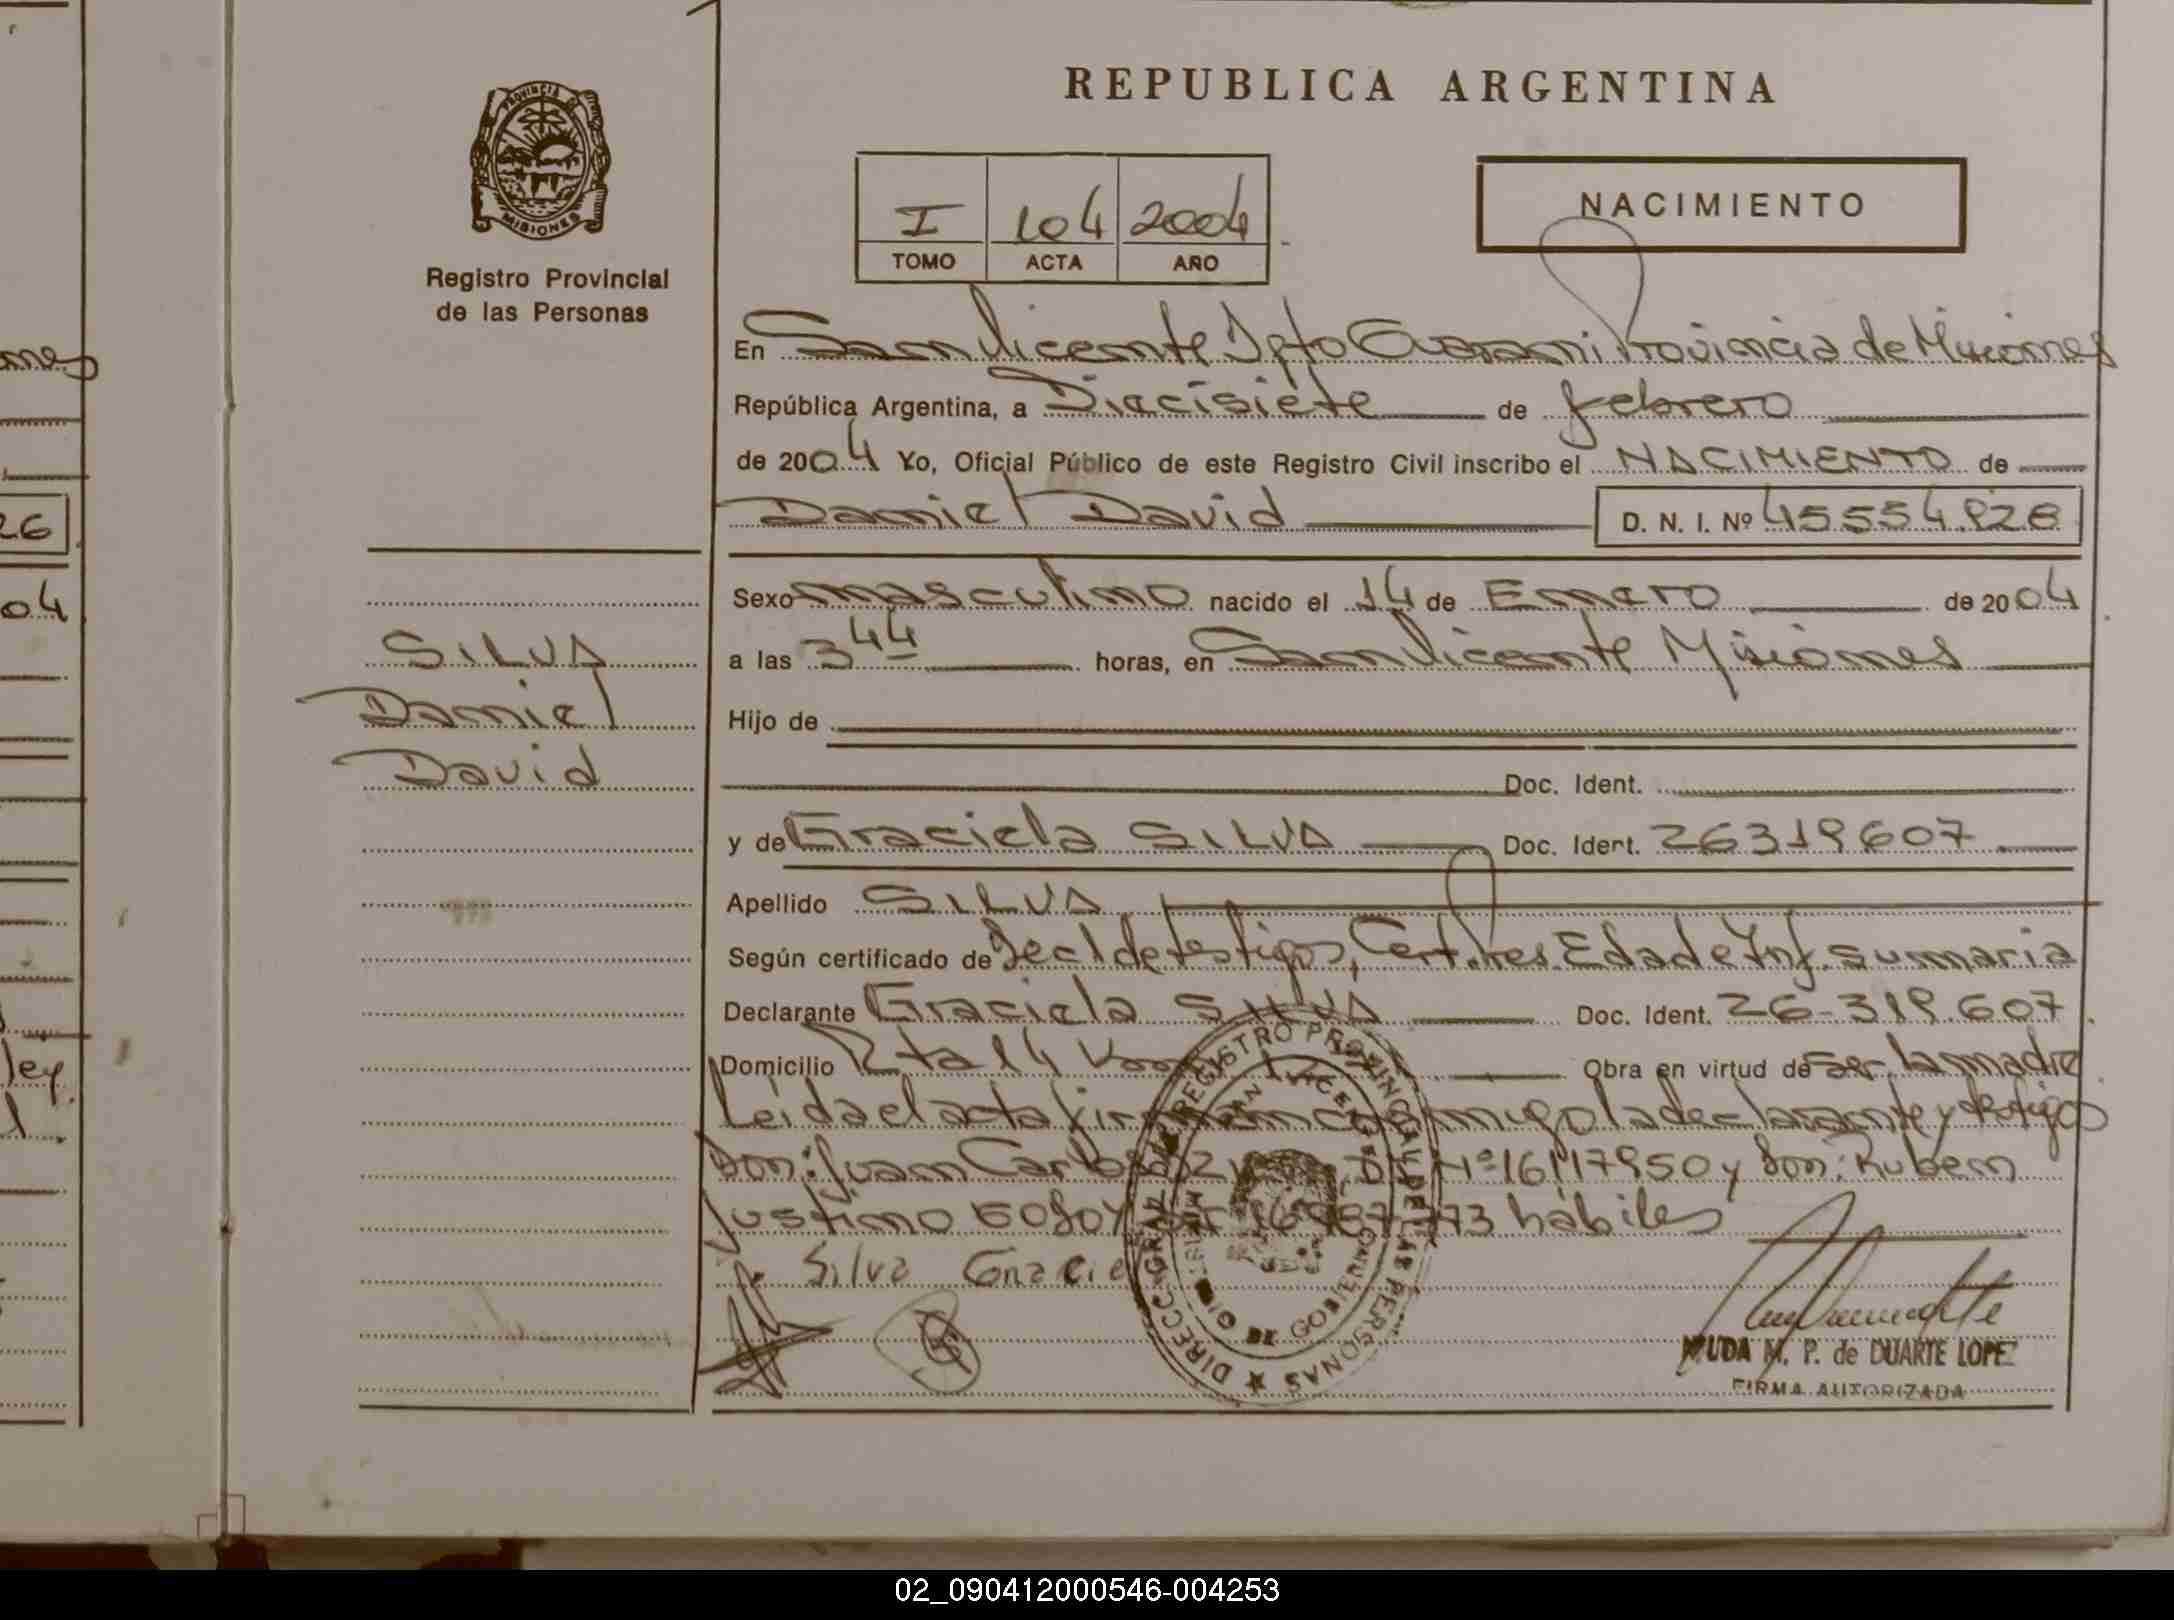 REPUBLICA ARGENTINA
PROVINCIA DE MISIONES
Registro Provincial
de las Personas
I 104 2004
TOMO ACTA AÑO
NACIMIENTO
En San Vicente Dpto Guarani Provincia de Misiones
República Argentina, a Diecisiete de febrero
de 2004 Yo, Oficial Público de este Registro Civil inscribo el NACIMIENTO de
Daniel David D. N. I. Nº 45554.828
Sexo masculino nacido el 14 de Enero de 2004
SILVA
Daniel
David
a las 3 44 horas, en San Vicente Misiones
Hijo de
Doc. Ident.
y de Graciela SILVA Doc. Ident. 26319607
Apellido SILVA
Según certificado de Decl de testigos, Cert. Pres. Edad e Inf. sumaria
Declarante Graciela SILVA Doc. Ident. 26-319.607
Domicilio Rta 14 Obra en virtud de ser la madre
Leida el acta firman conmigo la declarante y testigos
Don: Juan Carlos Nº 16117950 y Don: Ruben
Justino GODOY hábiles
Silva Graciel
DIRECC. GRAL. DEL REGISTRO PROVINCIAL DE LAS PERSONAS
SAN VICENTE
DE GOBIERNO
M. P. de DUARTE LOPEZ
FIRMA AUTORIZADA
ones
26
04
ley.
02_090412000546-004253